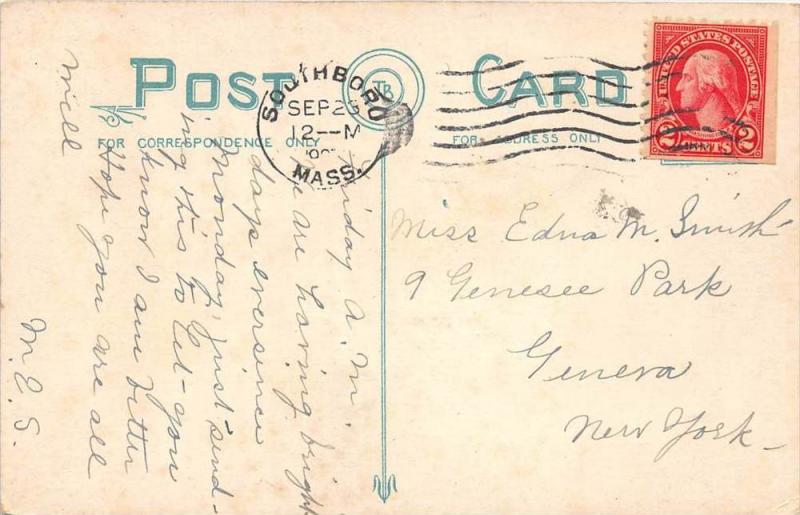 POST CARD
FOR CORRESPONDENCE ONLY
FOR ADDRESS ONLY
TB
SOUTHBORO
SEP 23
12--M
MASS.
UNITED STATES POSTAGE
2 CENTS 2
Friday A.M.
We are having bright
days ever since
Monday, just send-
ing this to let you
know I am better
Hope you are all
well
M. E. S.
Miss Edna M. Smith
9 Genesee Park
Geneva
New York